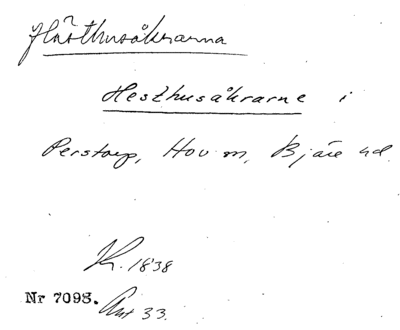 Hästhusåkrarna
Hesthusåkrarne i
Perstorp, Hov sn, Bjäre hd.
K. 1838
Nr 7098. Akt 33.